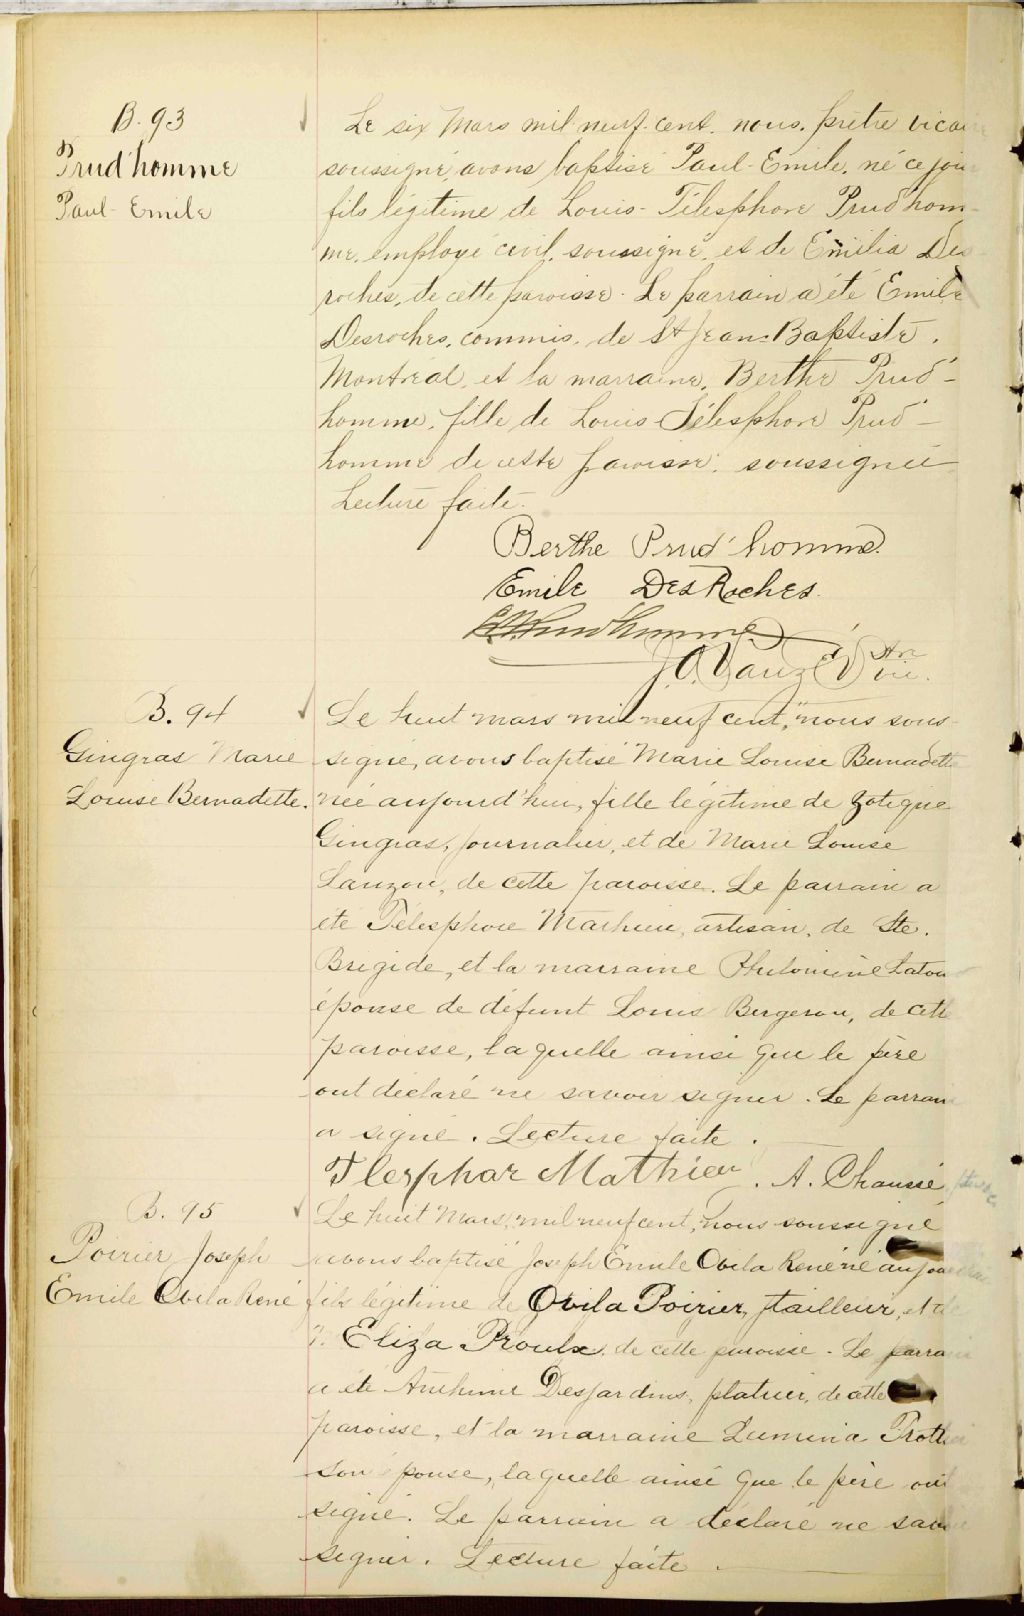 B. 93
Prud'homme
Paul-Emile
Le six Mars mil neuf cent. nous, prêtre vicaire
soussigné avons baptisé Paul-Emile, né ce jour
fils légitime de Louis-Télesphore Prud'hom-
me, employé civil, soussigné, et de Emilia Des-
roches, de cette paroisse. Le parrain a été Emile
Desroches, commis, de St Jean-Baptiste,
Montréal, et la marraine, Berthe Prud'-
homme, fille de Louis-Télesphore Prud'-
homme de cette paroisse, soussignée
Lecture faite.
Berthe Prud'homme.
Emile DesRoches.
Prud'homme
J. O.
vic.
B. 94
Gingras Marie
Louise Bernadette.
Le huit mars mil neuf cent, nous sous-
signé, avons baptisé Marie Louise Bernadette
née aujourd'hui, fille légitime de Zotique
Gingras, journalier, et de Marie Louise
Lauzon, de cette paroisse. Le parrain a
été Télesphore Mathieu, artisan, de Ste.
Brigide, et la marraine Philomène Latour
épouse de défunt Louis Bergeron, de cette
paroisse, laquelle ainsi que le père
ont déclaré ne savoir signer. Le parrain
a signé. Lecture faite.
Tlesphar Mathieu. A. Chaussé, ptre
B. 95
Poirier Joseph
Emile Ovila René
Le huit Mars, mil neuf cent, nous soussigné
avons baptisé Joseph Émile Ovila René né aujour
fils légitime de Ovila Poirier, tailleur, et de
Eliza Proulx de cette paroisse. Le parrain
a été Anthime Desjardins, platrier, de cette
paroisse, et la marraine Lumina
son épouse, laquelle ainsi que le père ont
signé. Le parrain a déclaré ne savoir
signer. Lecture faite.